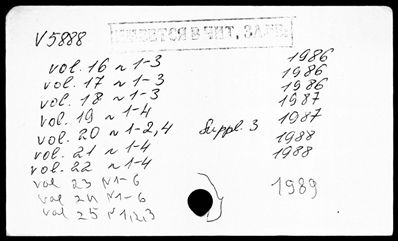 V5888
ИМЕЕТСЯ В ЧИТ. ЗАЛЕ
vol. 16 N 1-3 1986
vol. 17 N 1-3 1986
vol. 18 N 1-3 1986
vol. 19 N 1-4 1987
vol. 20 N 1-2, 4 Suppl. 3 1987
vol. 21 N 1-4 1988
vol. 22 N 1-4 1988
vol 23 N 1-6
vol 24 N 1-6 1989
vol 25 N 1,2,3